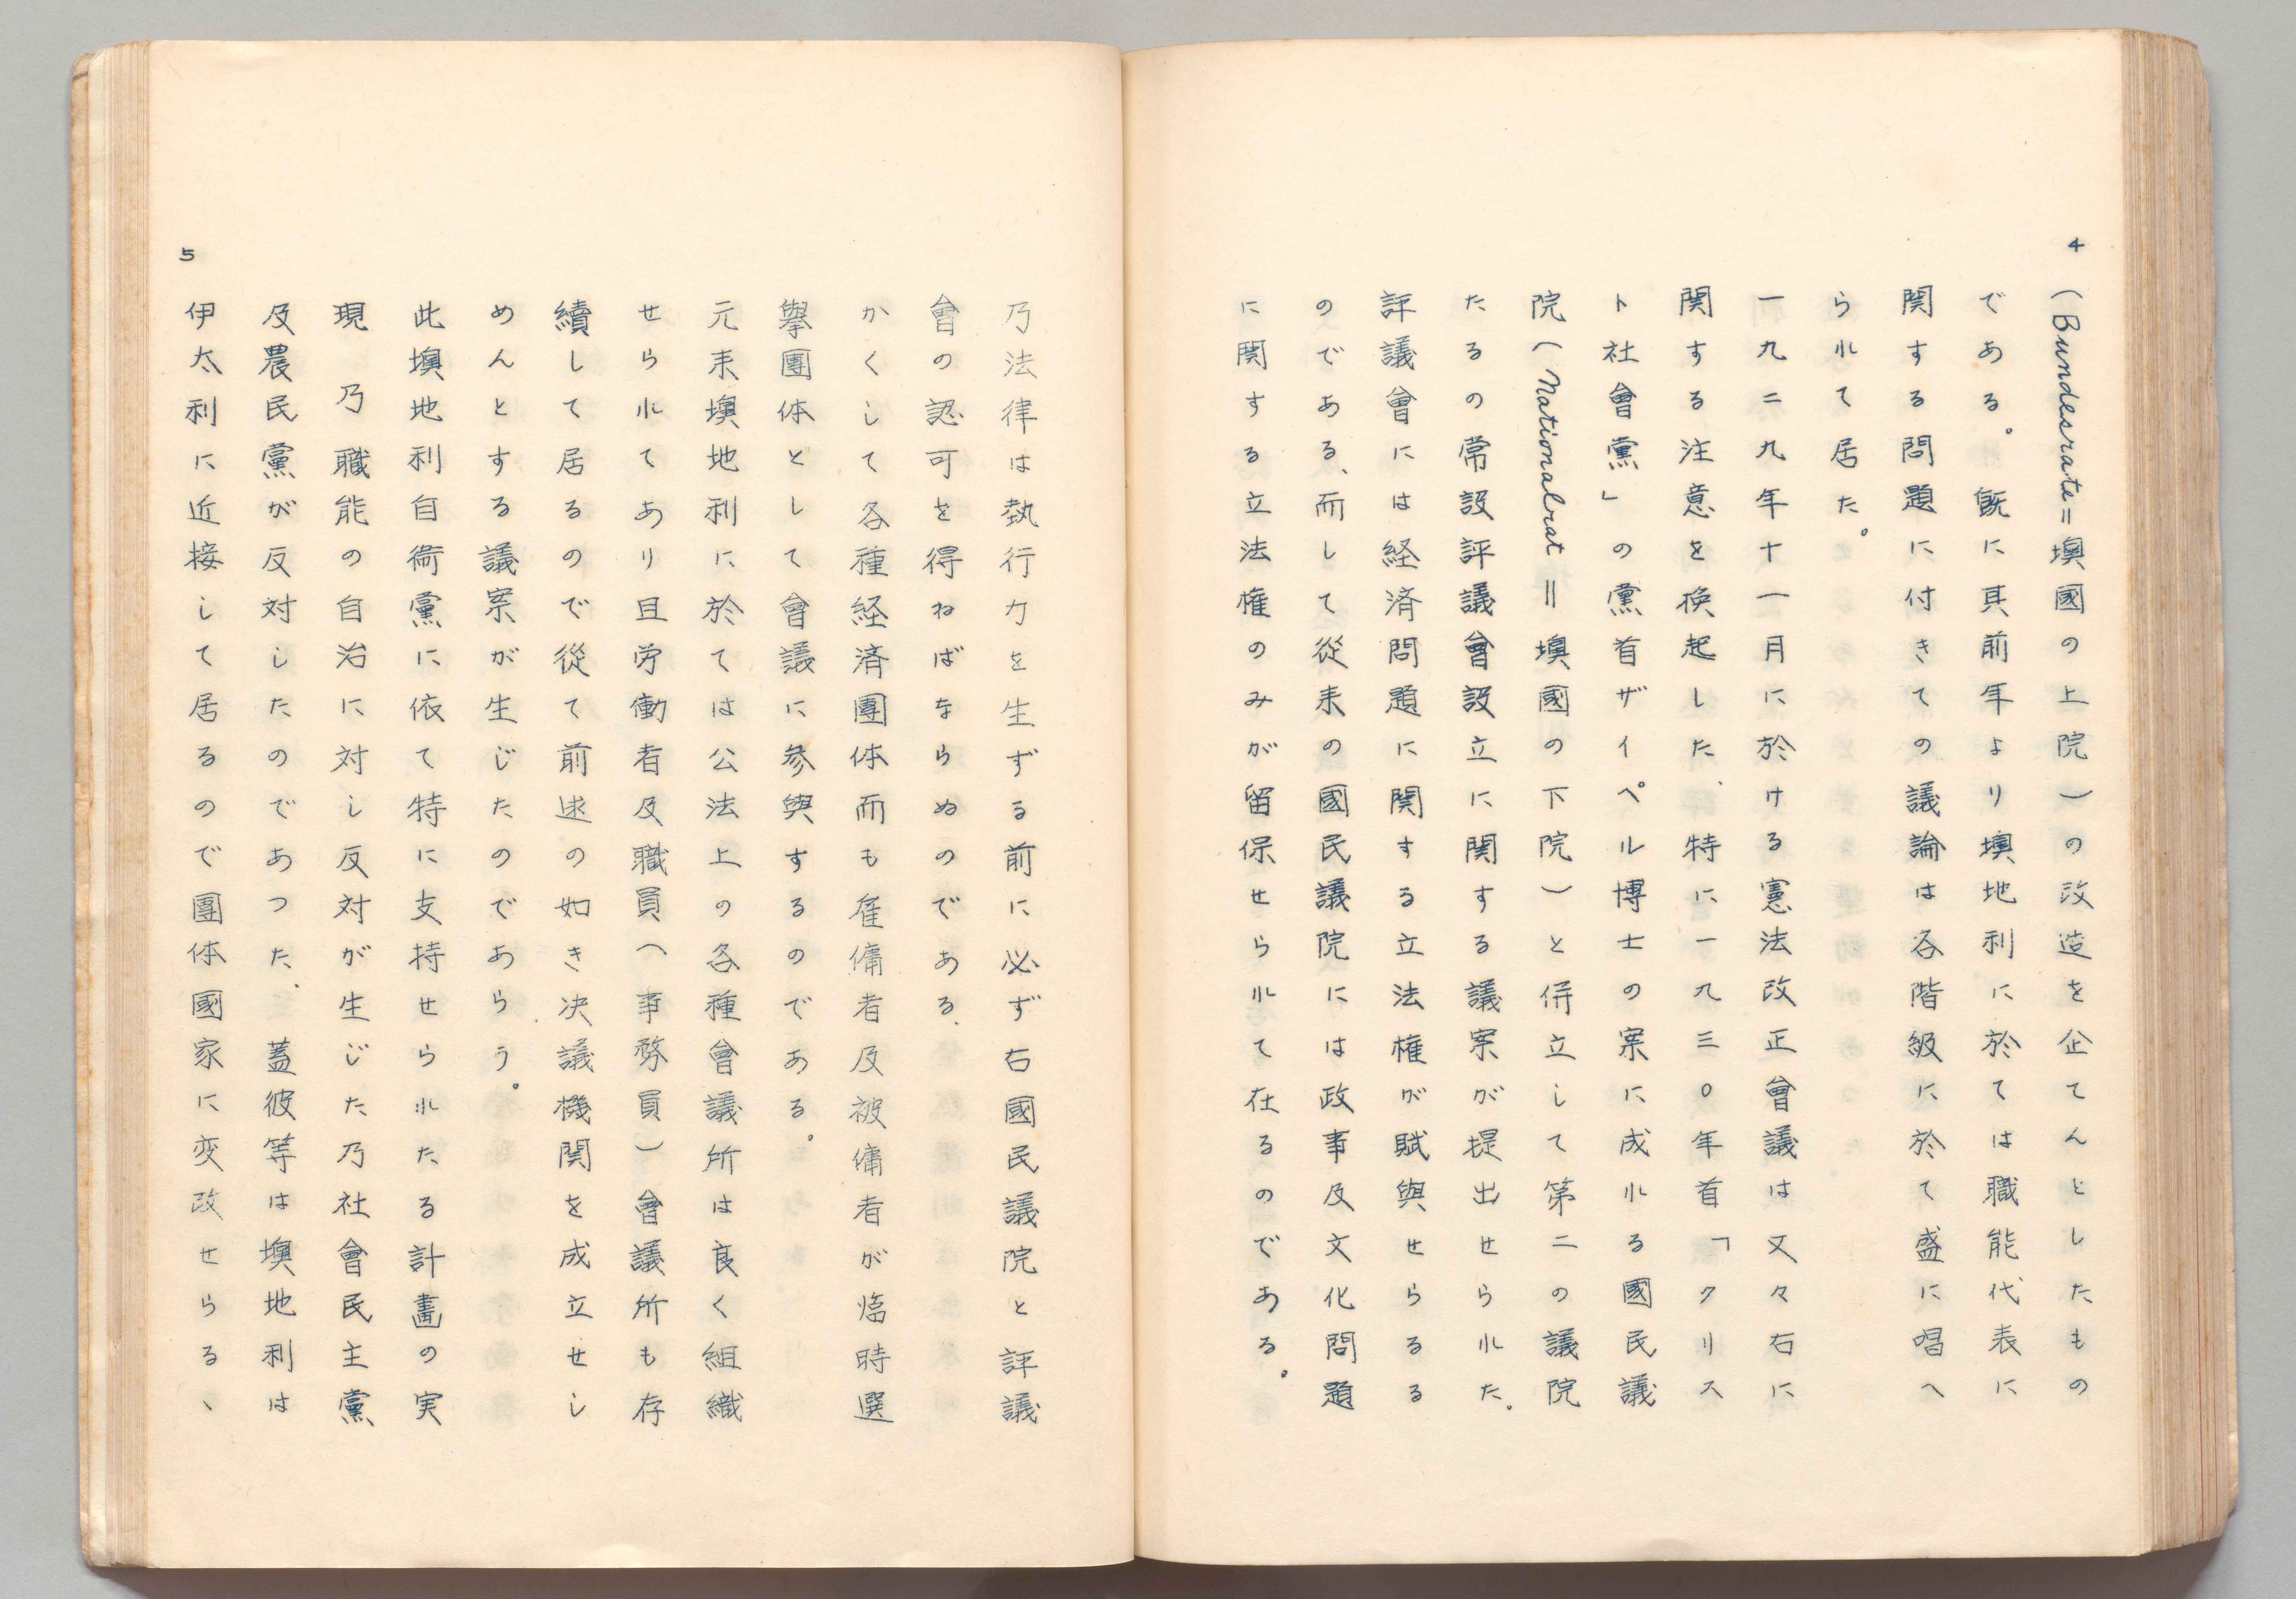 4
(Bundesrate=墺國の上院)の改造を企てんとしたもの
である。既に其前年より墺地利に於ては職能代表に
関する問題に付きての議論は各階級に於て盛に唱へ
られて居た。
一九二九年十一月に於ける憲法改正會議は又々右に
関する注意を喚起した、特に一九三〇年首「クリス
ト社會黨」の黨首ザイペル博士の案に成れる國民議
院(Nationalrat=墺國の下院)と併立して第二の議院
たるの常設評議會設立に関する議案が提出せられた。
評議會には経済問題に関する立法権が賦與せらるる
のである、而して從来の國民議院には政事及文化問題
に関する立法権のみが留保せられて在るのである。
乃法律は執行力を生ずる前に必ず右國民議院と評議
會の認可を得ねばならぬのである、
かくして各種経済團体而も雇傭者及被傭者が臨時選
擧團体として會議に参與するのである。
元来墺地利に於ては公法上の各種會議所は良く組織
せられてあり且労働者及職員(事務員)會議所も存
續して居るので從て前述の如き決議機関を成立せし
めんとする議案が生じたのであらう。
此墺地利自衛黨に依て特に支持せられたる計畫の実
現 乃職能の自治に対し反対が生じた乃社會民主黨
及農民黨が反対したのであつた、蓋彼等は墺地利は
伊太利に近接して居るので團体國家に変改せらるゝ
5